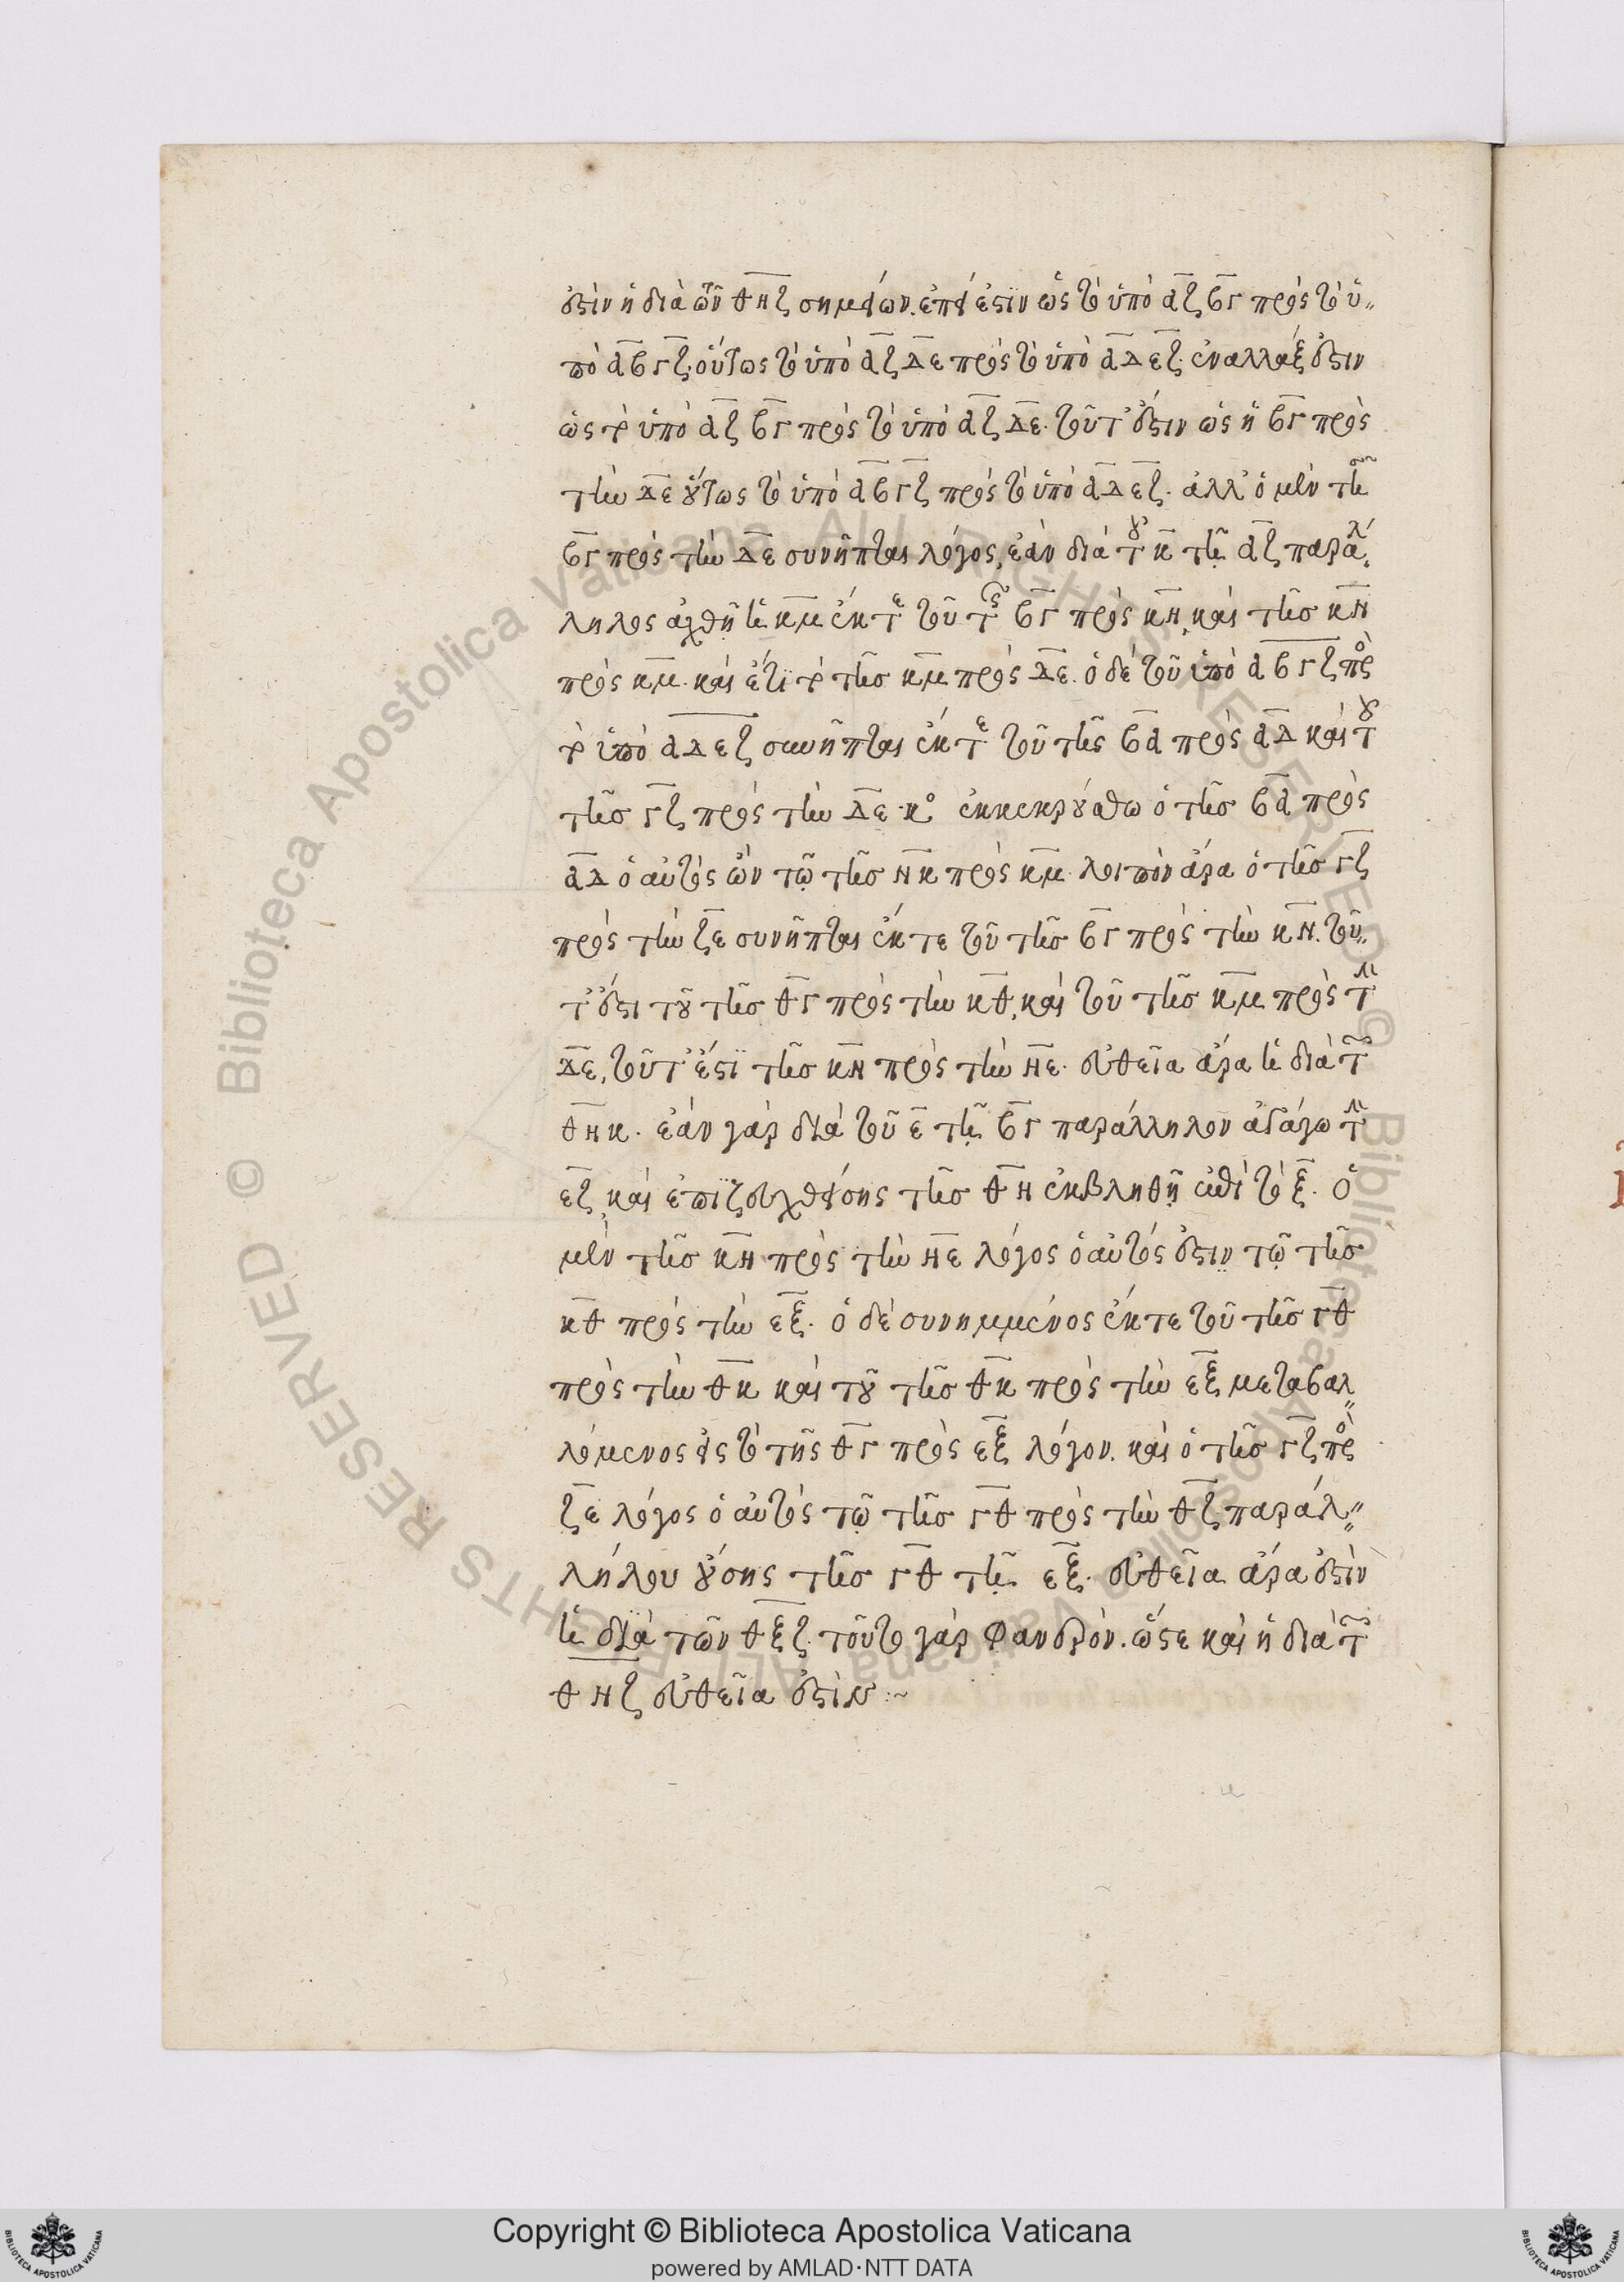 ἐστὶν ἡ διὰ τῶν θ̅η̅ζ̅ σημείων. ἐπεί ἐστιν ὡς τὸ ὑπὸ α̅ζ̅ β̅γ̅ πρὸς τὸ ὑ-
πὸ α̅β̅ γ̅ζ̅, οὕτως τὸ ὑπὸ α̅ζ̅ δ̅ε̅ πρὸς τὸ ὑπὸ α̅δ̅ ε̅ζ̅. ἐναλλάξ ἐστιν
ὡς τὸ ὑπὸ α̅ζ̅ β̅γ̅ πρὸς τὸ ὑπὸ α̅ζ̅ δ̅ε̅. τοῦτ' ἔστιν ὡς ἡ β̅γ̅ πρὸς
τὴν δ̅ε̅ οὕτως τὸ ὑπὸ α̅β̅ γ̅ζ̅ πρὸς τὸ ὑπὸ α̅δ̅ ε̅ζ̅. ἀλλ' ὁ μὲν τῆς
β̅γ̅ πρὸς τὴν δ̅ε̅ συνῆπται λόγος, ἐὰν διὰ τοῦ κ̅ τῇ α̅ζ̅ παρά
ληλος ἀχθῇ ἡ κ̅μ̅ ἐκ τε τοῦ τῆς β̅γ̅ πρὸς κ̅ν̅, καὶ τῆς κ̅ν̅
πρὸς κ̅μ̅. καὶ ἔτι τὸ τῆς κ̅μ̅ πρὸς δ̅ε̅. ὁ δὲ τοῦ ὑπὸ α̅β̅ γ̅ζ̅ πρὸς
τὸ ὑπὸ α̅δ̅ε̅ζ̅ συνῆπται ἐκ τε τοῦ τῆς β̅α̅ πρὸς α̅δ̅ καὶ τοῦ
τῆς γ̅ζ̅ πρὸς τὴν δ̅ε̅ κο ἐκκεκρούσθω ὁ τῆς β̅α̅ πρὸς
α̅δ̅ ὁ αὐτὸς ὢν τῷ τῆς ν̅κ̅ πρὸς κ̅μ̅. λοιπὸν ἄρα ὁ τῆς γ̅ζ̅
πρὸς τὴν ζ̅ε̅ συνῆπται ἐκ τε τοῦ τῆς β̅γ̅ πρὸς τὴν κ̅ν̅. τοῦ-
τ' ἔστι τοῦ τῆς θ̅γ̅ πρὸς τὴν κ̅θ̅, καὶ τοῦ τῆς κ̅μ̅ πρὸς τὴν
δ̅ε̅, τοῦτ' ἔστι τῆς κ̅η̅ πρὸς τὴν η̅ε̅. εὐθεῖα ἄρα ἡ διὰ τῶν
θ̅η̅κ̅. ἐὰν γὰρ διὰ τοῦ ε̅ τῇ β̅γ̅ παράλληλον ἀγάγω τὴν
ε̅ξ̅, καὶ ἐπιζευχθείσης τῆς θ̅η̅ ἐκβληθῇ ἐπὶ τὸ ξ̅. ὁ
μὲν τῆς κ̅η̅ πρὸς τὴν η̅ε̅ λόγος ὁ αὐτός ἐστιν τῷ τῆς
κ̅θ̅ πρὸς τὴν ε̅ξ̅. ὁ δὲ συνημμένος ἐκ τε τοῦ τῆς γ̅θ̅
πρὸς τὴν θ̅κ̅ καὶ τοῦ τῆς θ̅κ̅ πρὸς τὴν ε̅ξ̅ μεταβαλ-
λόμενος εἰς τὸ τῆς θ̅γ̅ πρὸς ε̅ξ̅ λόγον. καὶ ὁ τῆς γ̅ζ̅ πρὸς
ζ̅ε̅ λόγος ὁ αὐτὸς τῷ τῆς γ̅θ̅ πρὸς τὴν θ̅ζ̅ παραλ-
λήλου οὔσης τῆς γ̅θ̅ τῇ ε̅ξ̅. εὐθεῖα ἄρα ἐστὶν
ἡ διὰ τῶν θ̅ξ̅ζ̅. τοῦτο γὰρ φανερόν. ὥστε καὶ ἡ διὰ τῶν
θ̅η̅ζ̅ εὐθεῖά ἐστιν :~
Copyright © Biblioteca Apostolica Vaticana
powered by AMLAD·NTT DATA